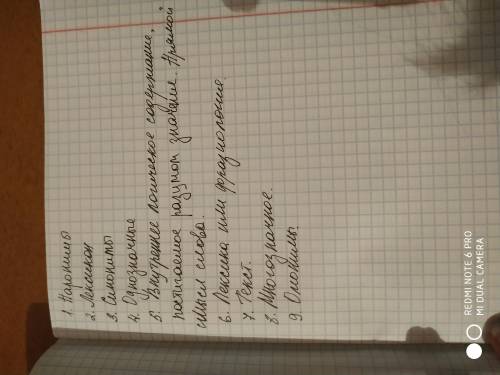 1. Паронимы
2. Лексикон
3. Синонимы
4. Однозначные
5. Внутреннее логическое содержание,
постигаемое разумом значение. Прямой
смысл слова.
6. Лексика или фразиология.
7. Текст.
8. Многозначное.
9. Омонимы.
REDMI NOTE 6 PRO
MI DUAL CAMERA